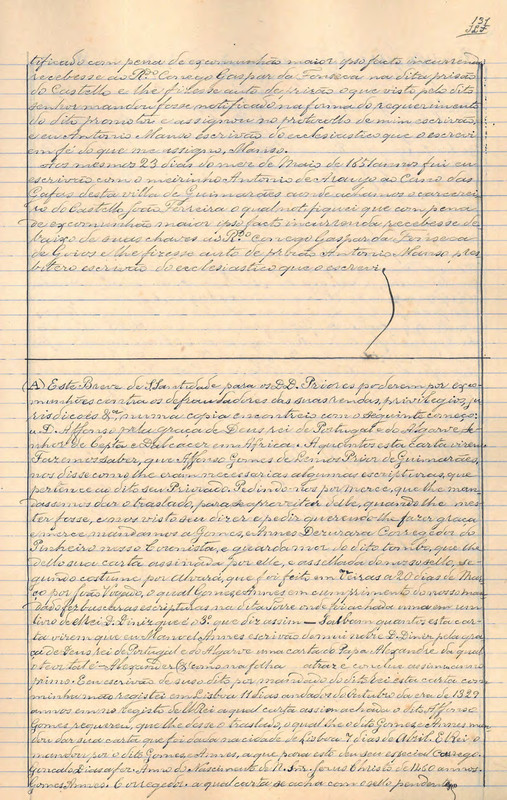 137
tificado com pena de excommunhão maior ipso facto incurrenda
recebesse ao R.do Conego Gaspar da Fonseca na dita prisão
do Castello e lhe fizesse auto de prisão o que visto pelo dito
senhor mandou fosse notificado na forma do requerimento
do dito promotor e assignou no protocollo de mim escrivão,
e eu Antonio Manso escrivão do ecclesiastico que o escrevi
em fé do que me assigno, Manso.
Aos mesmos 23 dias do mez de Maio de 1651 annos fui eu
escrivão com o meirinho Antonio de Araujo ao Cano das
Gafas desta villa de Guimarães aonde achamos o carcerei-
ro do Castello João Ferreira o qual notifiquei que com pena
de excommunhão maior ipso facto incurrenda recebesse de
baixo de suas chaves ao R.do Conego Gaspar da Fonseca
de Goios e lhe fizesse auto de prisão Antonio Manso pres-
bitero escrivão do ecclesiastico que o escrevi.
(A) Este Breve de S. Santidade para os D.D. Priores poderem por exco-
munhões contra os defraudadores das suas rendas, privilegios, ju-
risdicções &.a, numa copia encontrei com o seguinte começo:
D. Affonso pela graça de Deus rei de Portugal e do Algarve se-
nhor de Cepta e D'Alcacer em Africa. A quantos esta carta virem
Fazemos saber, que Affonso Gomes de Lemos Prior de Guimarães,
nos disse como lhe eram necessarias algumas escripturas, que
pertence ao dito seu Priorado. Pedindo-nos por mercê, que lhe man-
dassemos dar o traslado, para se aproveitar delle, quando lhe mes-
ter fosse, e nos visto seu dizer e pedir querendo-lhe fazer graça
e mercê mandamos a Gomes, e Annes Derurara Corregedor do
Pinheiro nosso Coronista, e guarda mor do dito tombo, que lhe
dello sua carta assinada por elle, e assellada do nosso sello, se-
gundo costume por Alvará, que foi feito em Veiras a 20 dias de Mar-
ço por João Vogado, o qual Gomes Annes em cumprimento do nosso man-
dado fez buscar as escripturas na dita Torre onde foi achada uma em um
livro de el-Rei D. Diniz que é o 3.º que diz assim — Saibam quantos esta car-
ta virem que eu Manoel Annes escrivão do mui nobre D. Diniz pela graça
de Deus rei de Portugal e do Algarve uma carta do Papa Alexandre da qual
o teor tal é — Alexander &. como na folha atraz e conclue assim: anno
primo. E eu escrivão de suso dito por mandado do dito rei esta carta com
minha mão registei em Lisboa 11 dias andados de Outubro da era de 1329
annos em no registo de el Rei a qual carta assim achada o dito Affonso
Gomes requereu, que lhe desse o traslado, o qual lhe o dito Gomes e Annes man-
dou dar sua carta que foi dada na cidade de Lisboa 7 dias de Abril. El Rei o
mandou por o dito Gomes e Annes, a que para este deu seu especial carrego
Gonçalo Dias a fez. Anno do Nascimento de N. Snr. Jesus Christo de 1460 annos.
Gomes Annes. Corregedor. a qual carta se acha com o sello pendente,